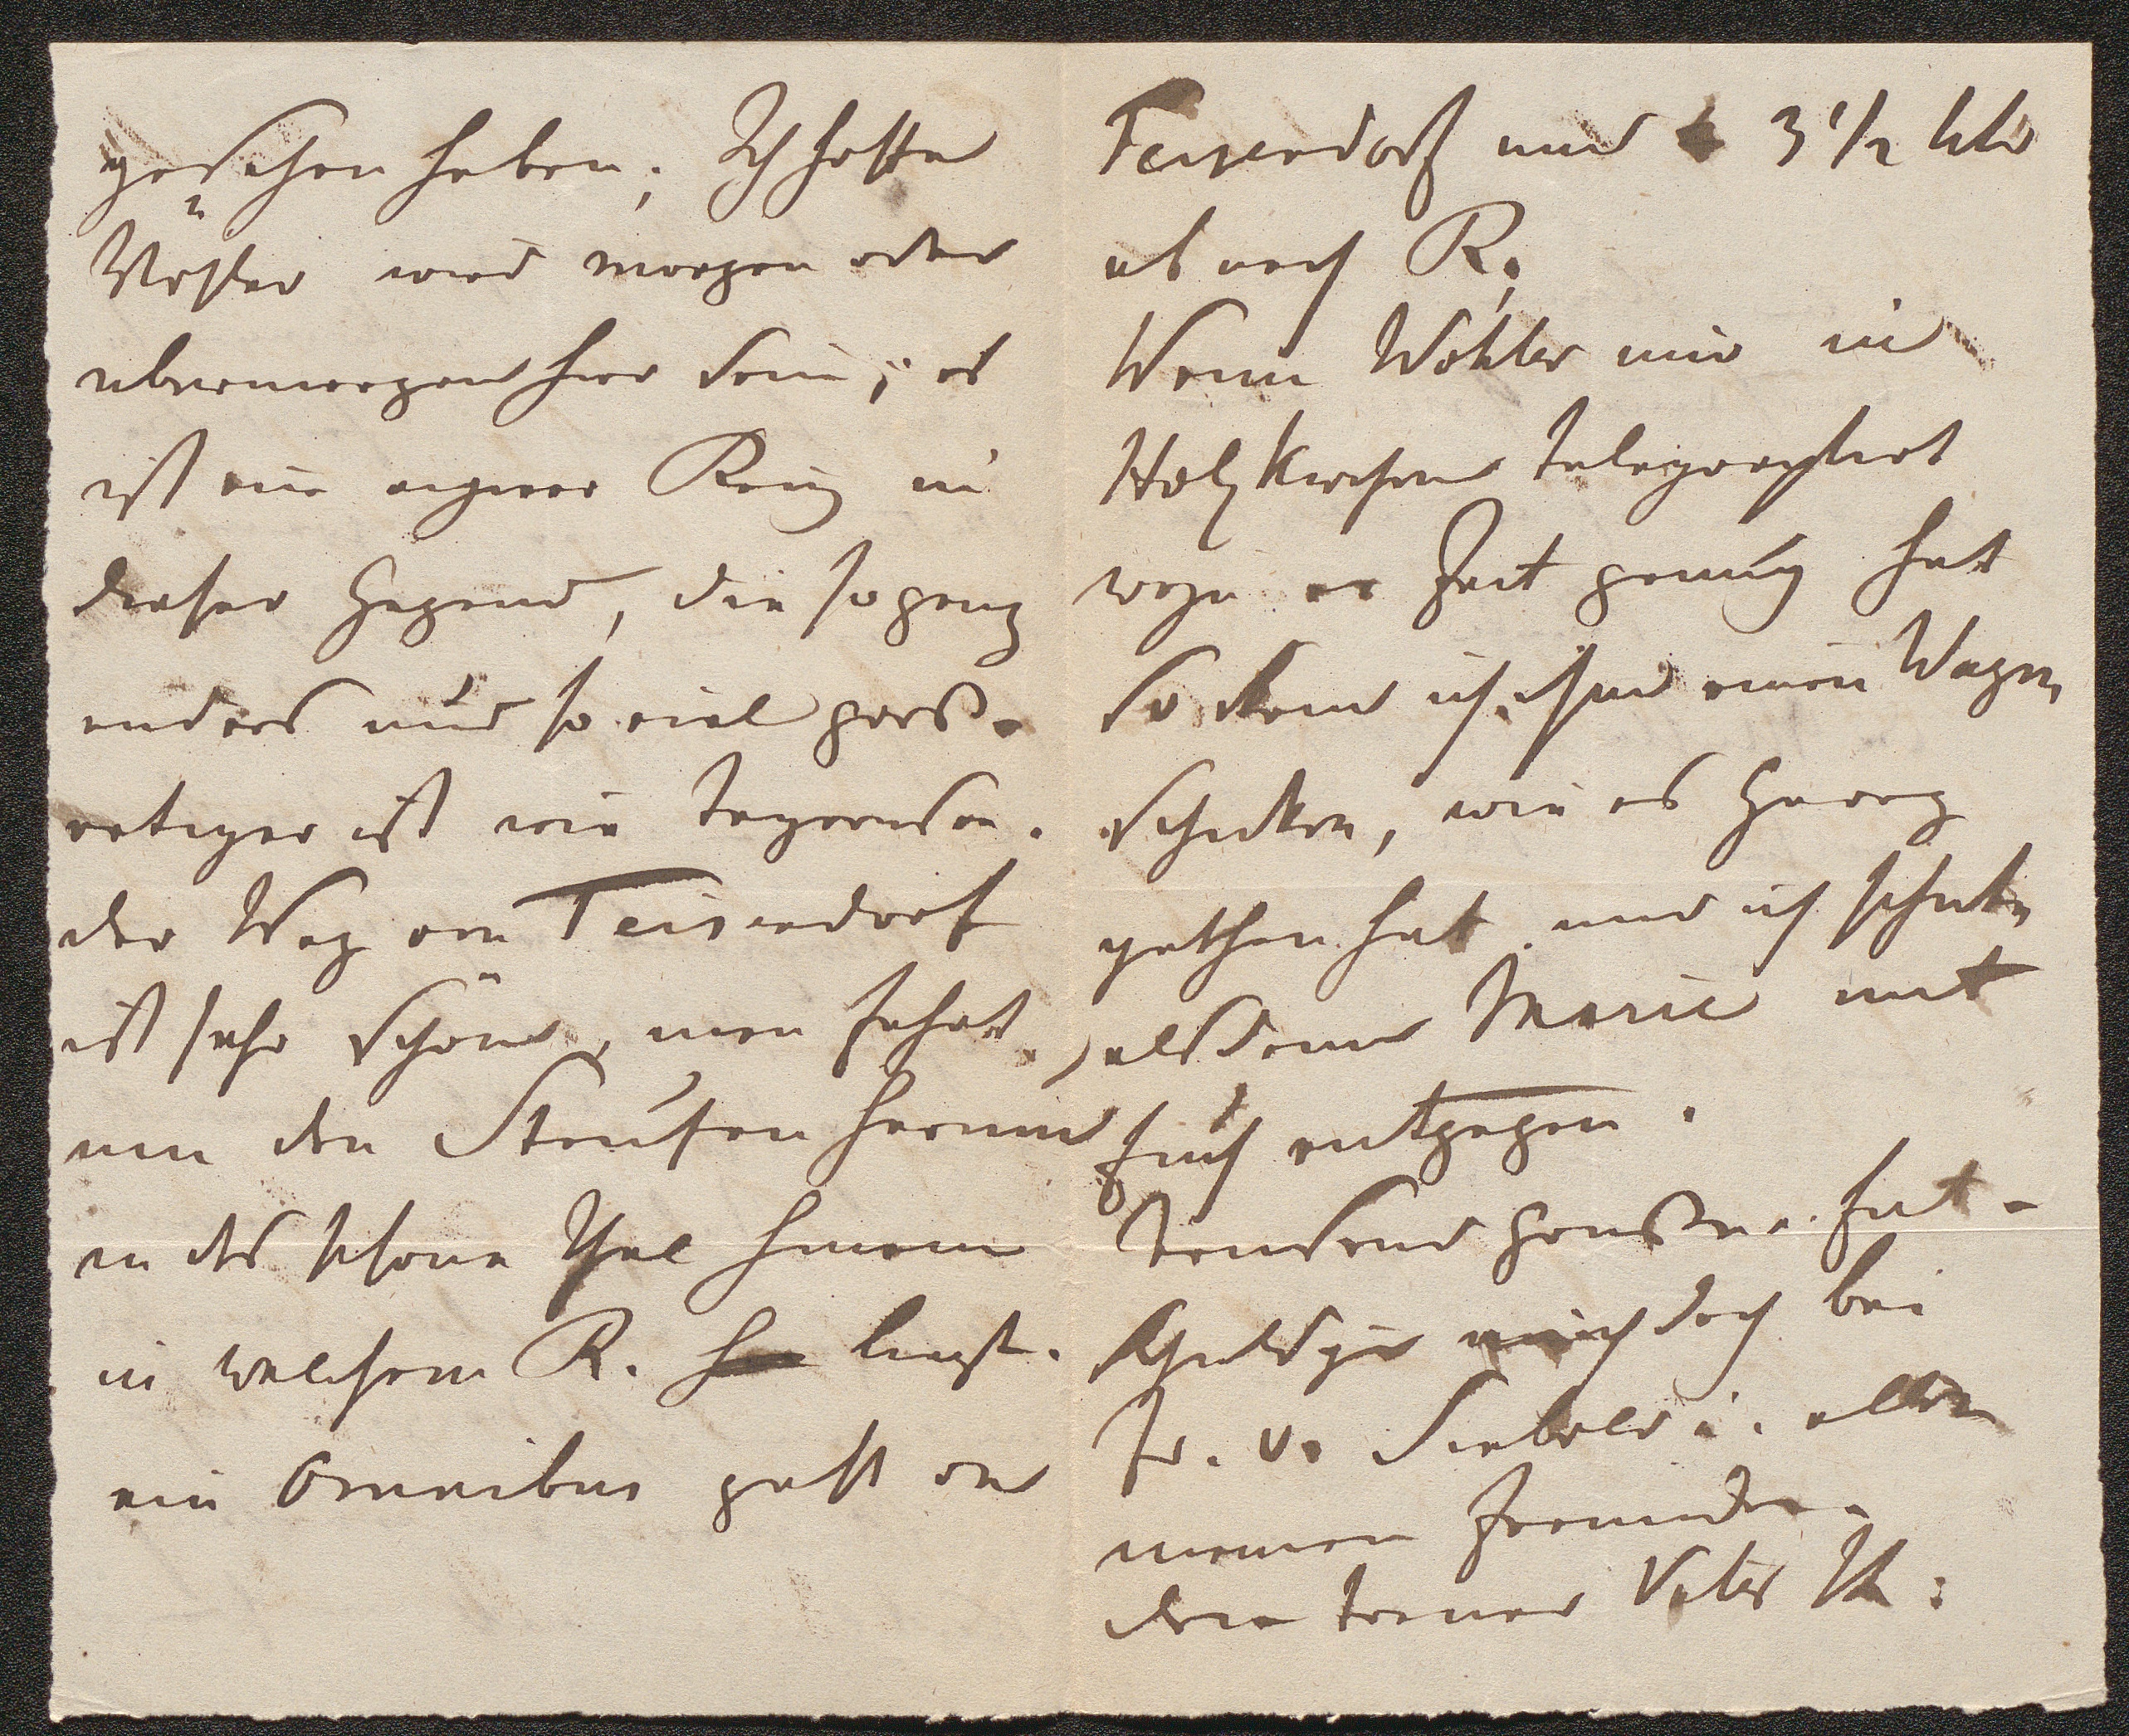 gesehen haben; Ich hoffe
Wöhler wird morgen oder
übermorgen hier sein; es
ist ein eigner Reiz in
dieser Gegend, die so ganz
anders und so viel groß-
artiger ist wie Tegernsee.
der Weg von Teisendorf
ist sehr schön, man fahrt
um den Staufen herum
in das schöne Thal hinein
in welchem R. liegt.
ein Omnibus geht von
Teisendorf um 3 1/2 Uhr
ab nach R.
Wenn Wöhler mir in
Holzkirchen telegraphirt
wozu er Zeit genug hat
so kann ich ihm einen Wagen
schicken, wie es Georg
gethan hat und ich schicke
alsdann Marie mit
Euch entgegen.
Tausend Grüße. Ent-
schuldige mich doch bei
Fr. v. Siebold u. allen
meinen Freunden.
dein treuer Vater